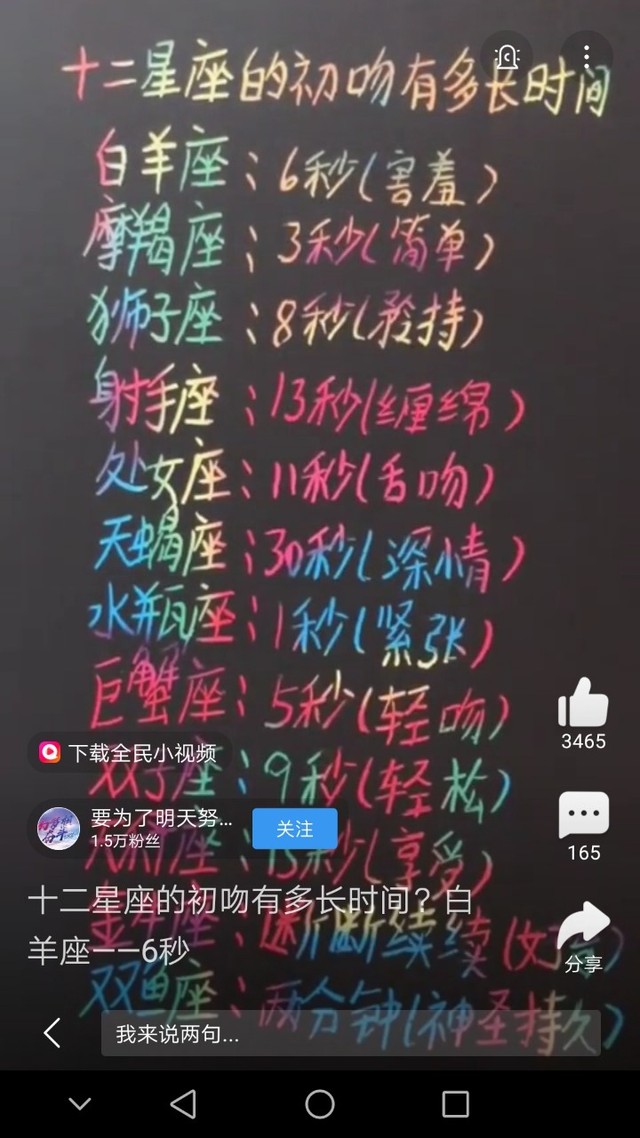 十二星座的初吻有多长时间
白羊座：6秒(害羞)
摩羯座：3秒(简单)
狮子座：8秒(矜持)
射手座：13秒(缠绵)
处女座：11秒(舌吻)
天蝎座：30秒(深情)
水瓶座：1秒(紧张)
巨蟹座：5秒(轻吻)
下载全民小视频
双子座：9秒(轻松)
要为了明天努...
1.5万粉丝
关注
天秤座：15秒(享受)
十二星座的初吻有多长时间？白
羊座——6秒
金牛座：断断续续(
双鱼座：两分钟(神圣持久)
3465
165
分享
我来说两句...